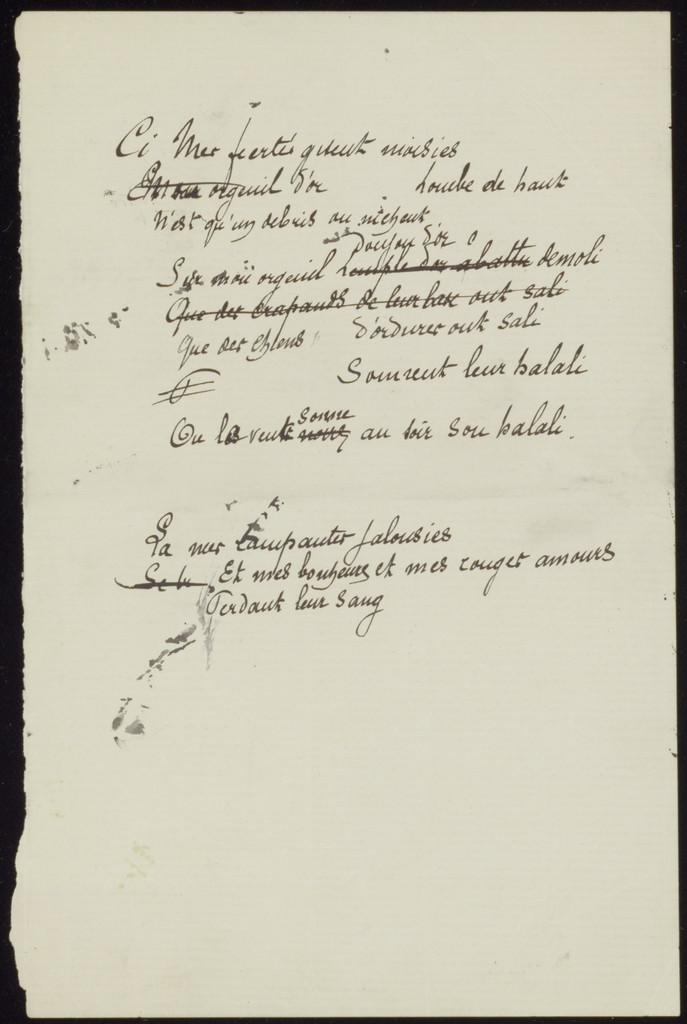 Ci Mes fiertés gisent moisies
Et mon orgeuil d'or tombe de haut
N'est qu'un debris ou nichent
Donjon d'or
Sur mon orgeuil temple d'or abattu demoli
Que des crapauds de leur bave ont sali
Que des chiens d'ordures ont sali
Sonnent leur halali
sonne
Ou les vents au soir son halali.
La mes rampantes jalousies
Et mes bonheurs et mes rouges amours
Perdant leur sang